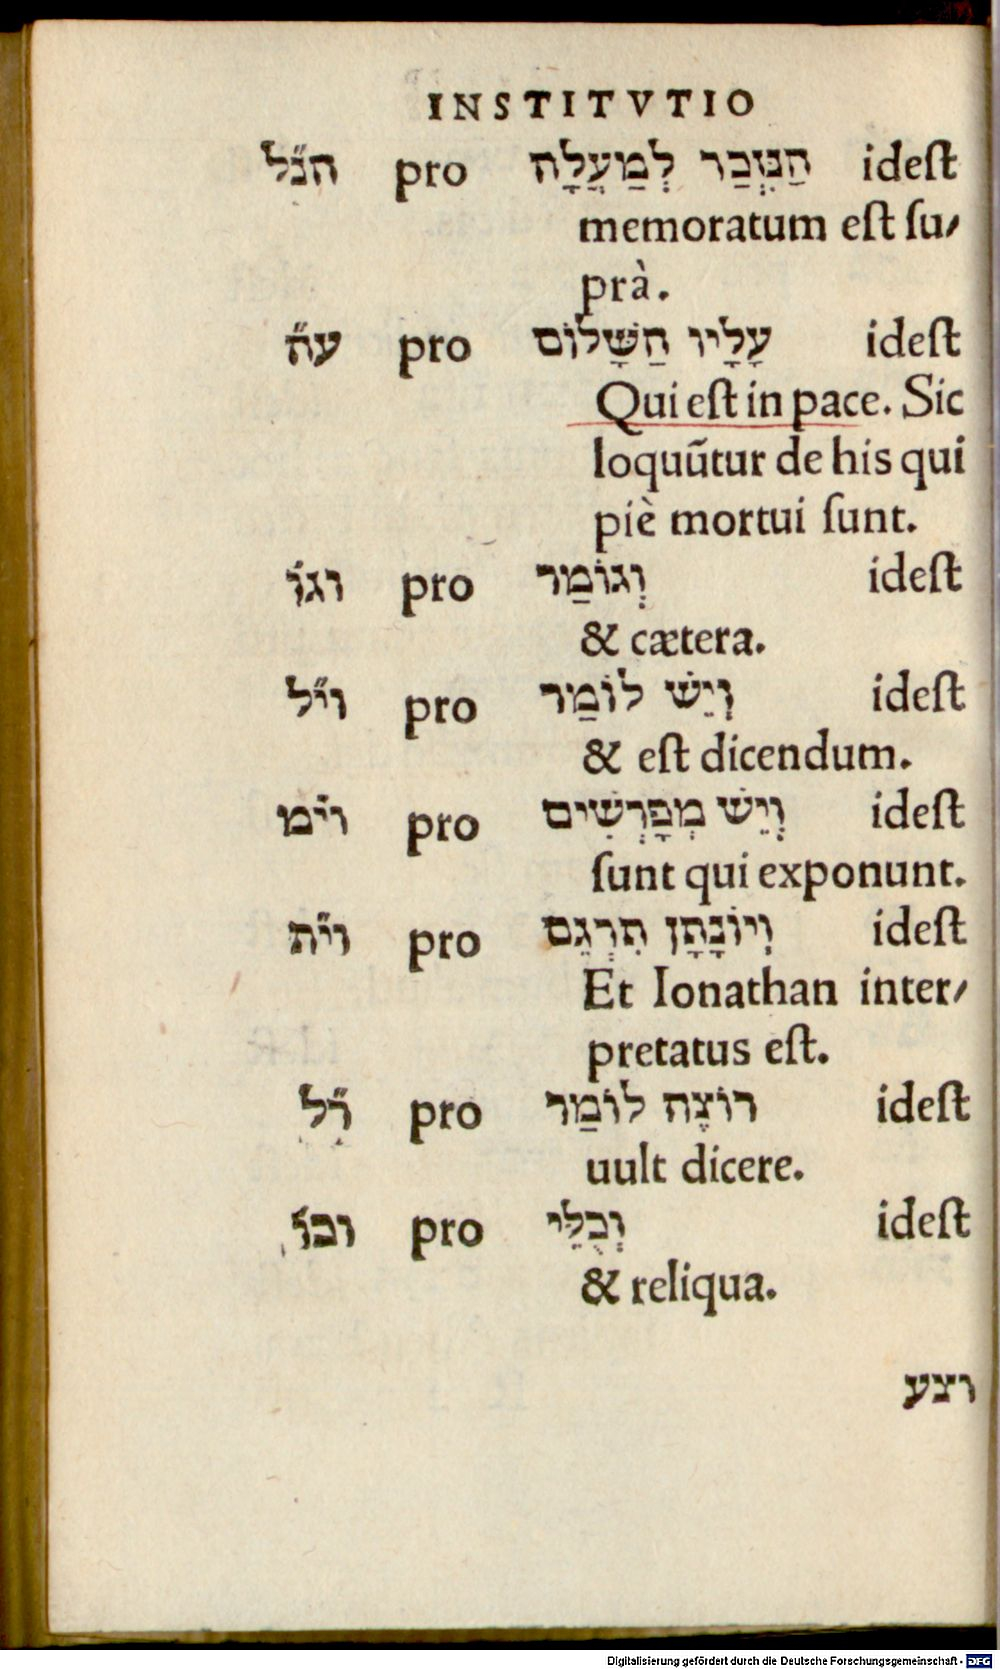 INSTITVTIO
הנ״ל pro הַנִּזְכַר לְמַעֲלָה ideſt
memoratum eſt ſu⸗
prà.
ע״ה pro עָלָיו הַשָּׁלוֹם ideſt
Qui eſt in pace. Sic
loquūtur de his qui
piè mortui ſunt.
וגו׳ pro וְגוֹמַר ideſt
& cætera.
וי״ל pro וְיֵשׁ לוֹמַר ideſt
& eſt dicendum.
וי׳מ pro וְיֵשׁ מְפָרְשִׁים ideſt
ſunt qui exponunt.
וי״ת pro וְיוֹנָתָן תִרְגֵם ideſt
Et Ionathan inter⸗
pretatus eſt.
ר״ל pro רוֹצֶה לוֹמַר ideſt
uult dicere.
וכו׳ pro וְכֻלֵּי ideſt
& reliqua.
וצע
Digitalisierung gefördert durch die Deutsche Forschungsgemeinschaft - DFG